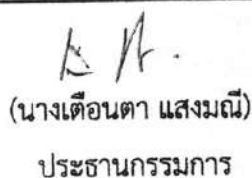 (นางเตือนตา แสงมณี)
ประธานกรรมการ